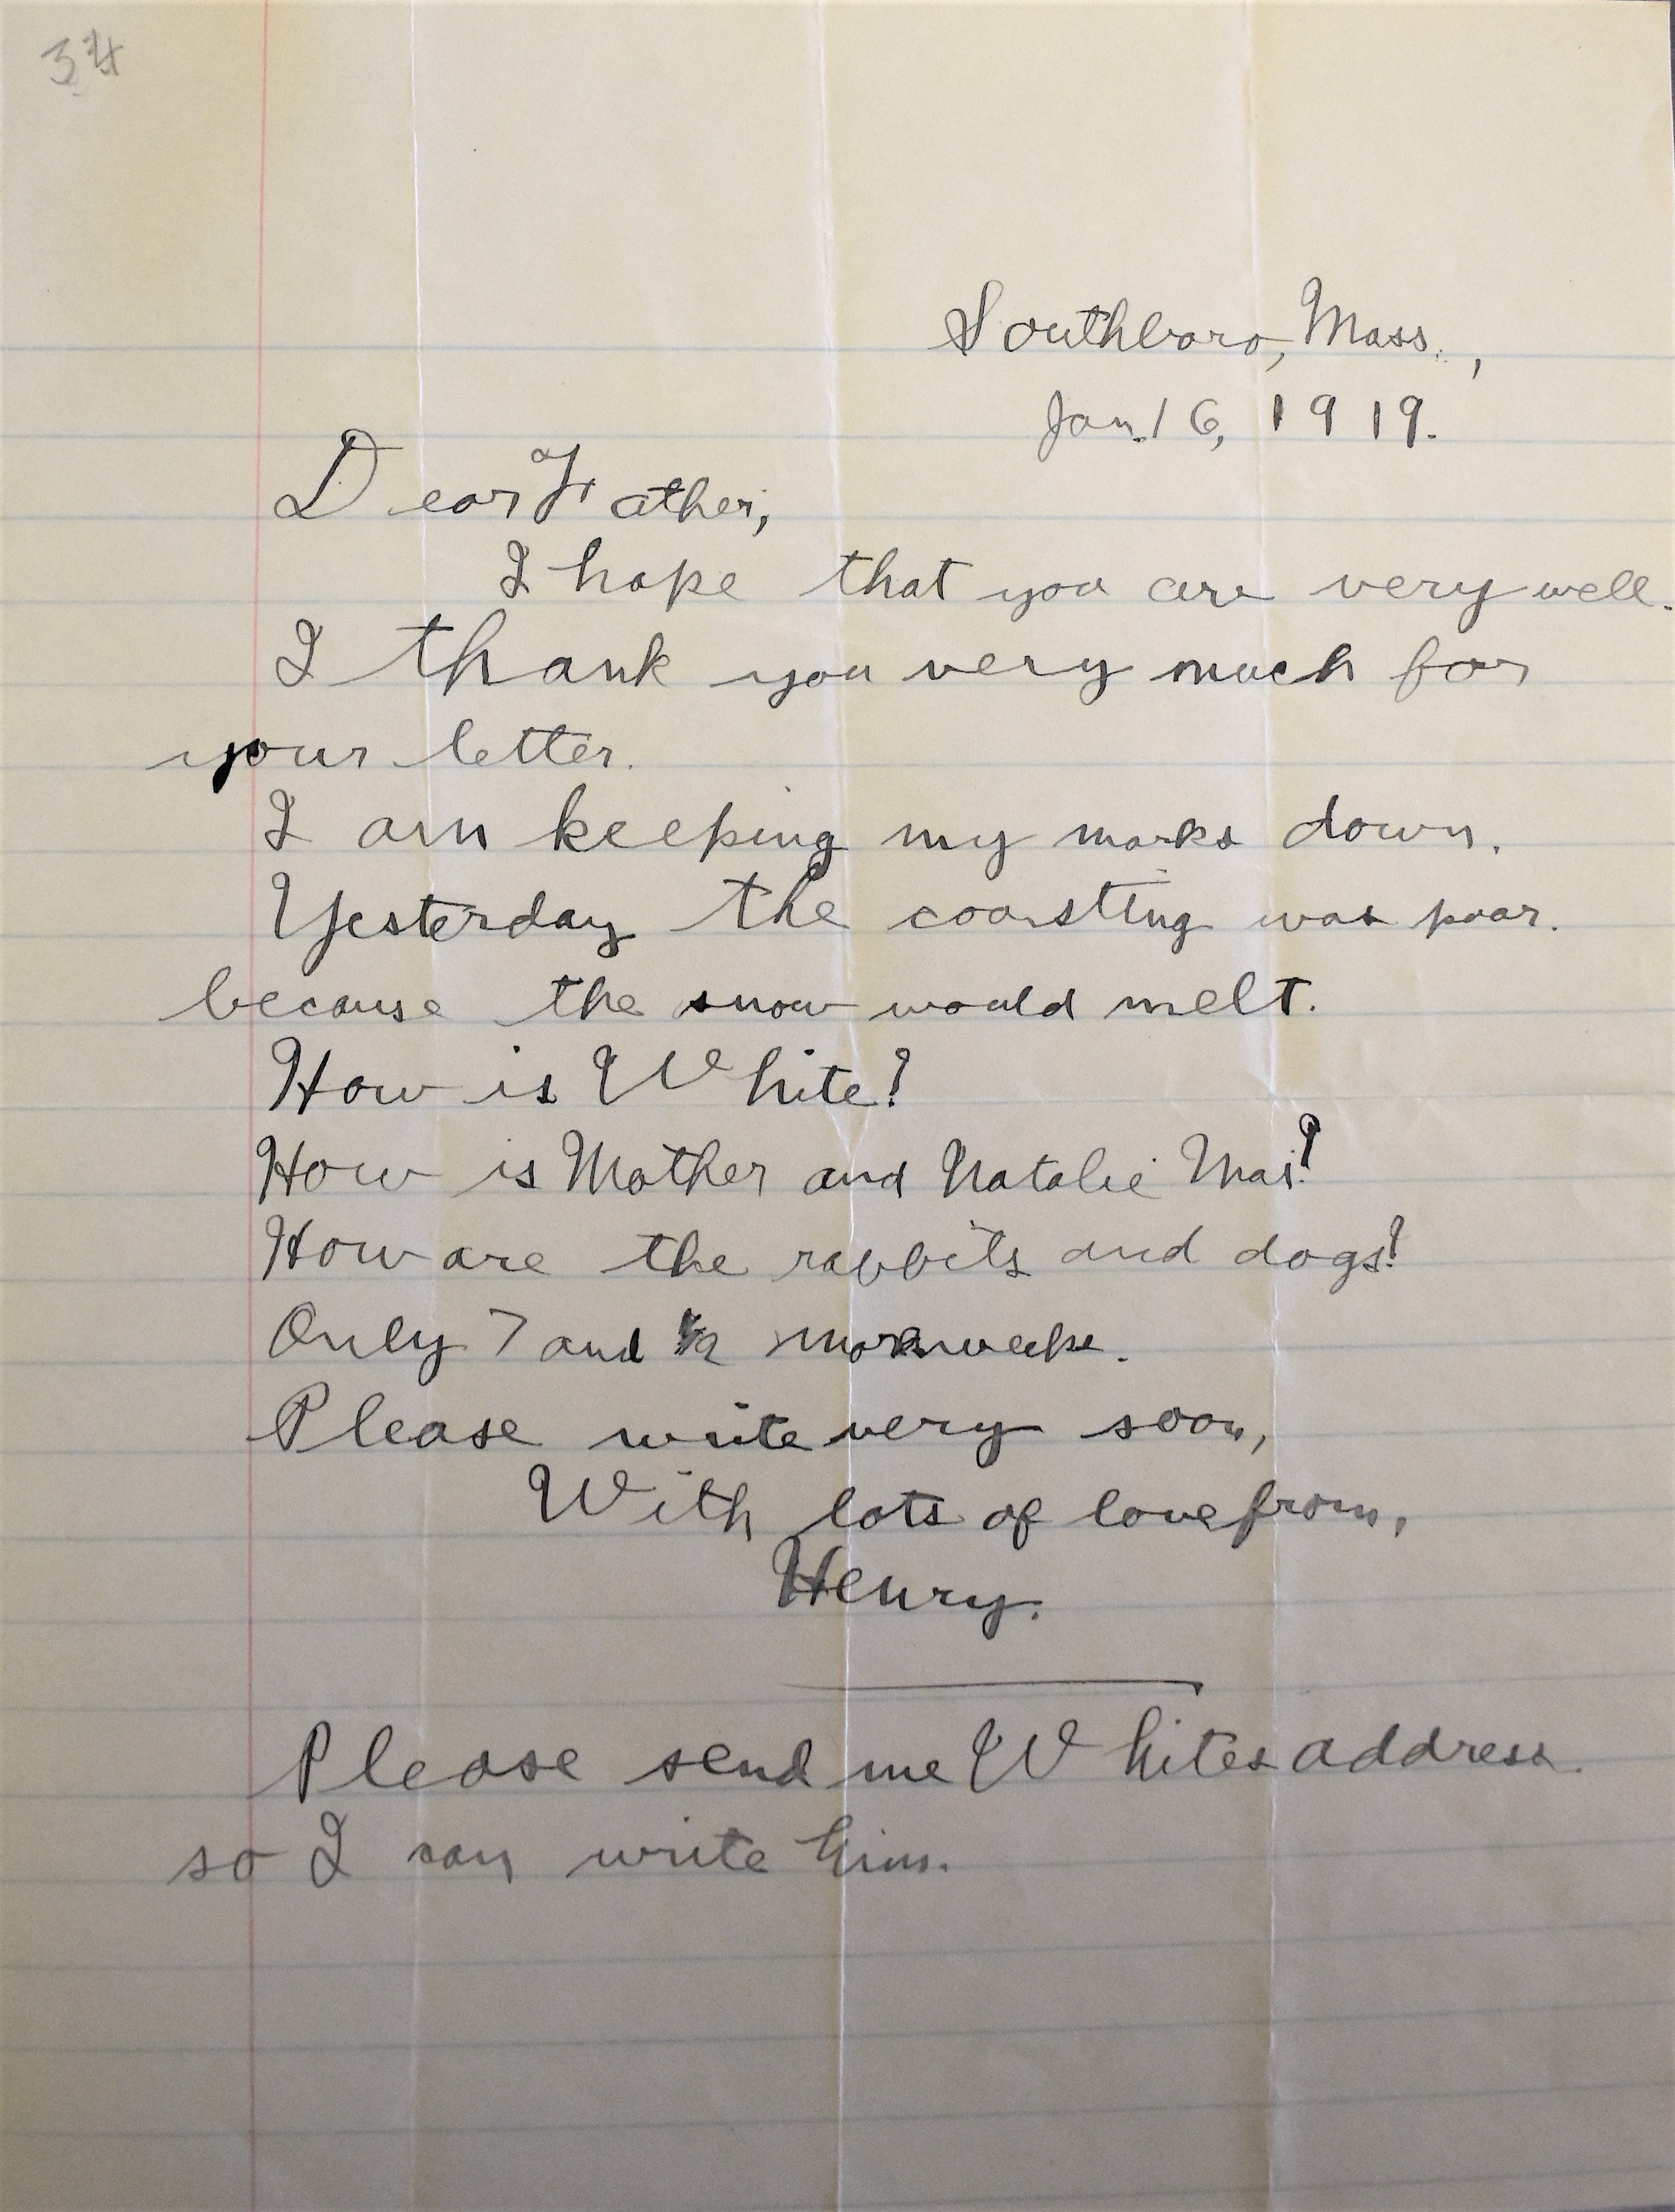 34
Southboro, Mass.,
Jan. 16, 1919.
Dear Father,
I hope that you are very well.
I thank you very much for
your letter.
I am keeping my marks down.
Yesterday the coasting was poor.
because the snow would melt.
How is White?
How is Mother and Natalie Mai?
How are the rabbits and dogs?
Only 7 and 1/2 more weeks.
Please write very soon,
With lots of love from,
Henry.
Please send me Whites address.
so I can write him.